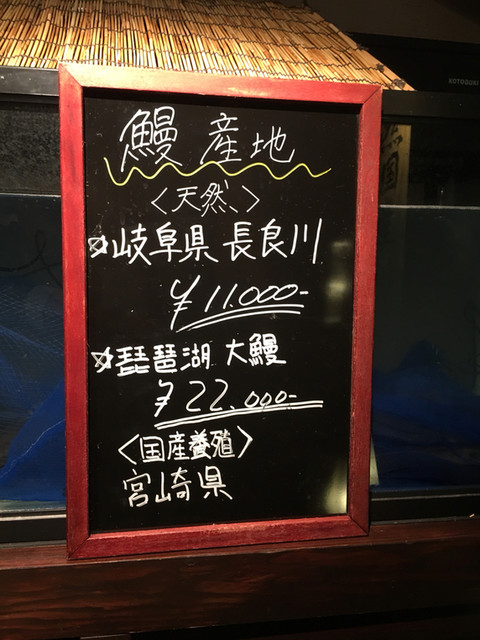 KOTOBUKI
鰻産地
〈天然〉
☆岐阜県 長良川
¥11.000-
☆琵琶湖 大鰻
¥22.000-
〈国産養殖〉
宮崎県